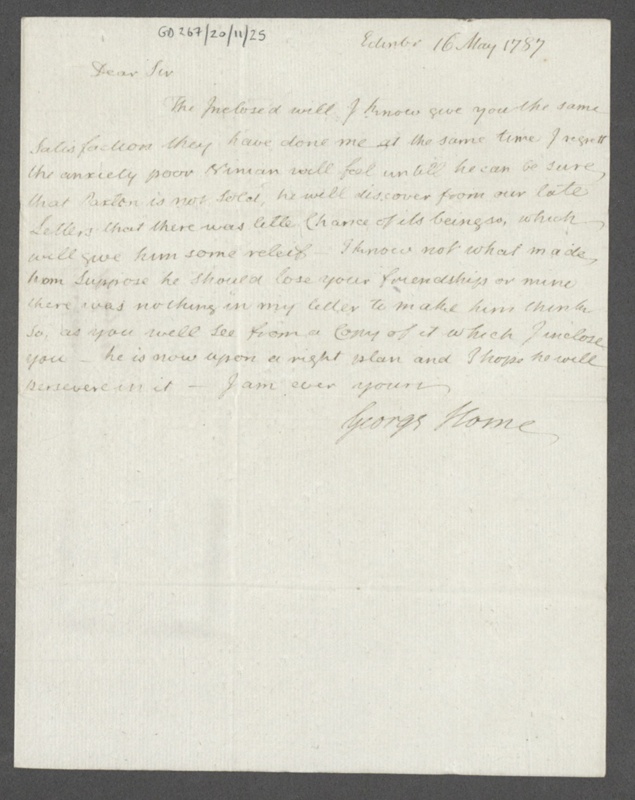 GD267/20/11/25
Edinbr 16 May 1787
Dear Sir
The Inclose'd will I know give you the same
Satisfaction they have done me at the same time I regrett
the anxiety poor Ninian will feel untill he can be sure
that Paxton is not Sold, he will discover from our late
Letters that there was litle Chance of its being so, which
will give him some releif - I know not what made
him Suppose he should lose your friendship or mine
there was nothing in my letter to make him think
so, as you will see from a Copy of it which I inclose
you - he is now upon a right plan and I hope he will
persevere in it - I am ever yours
George Home